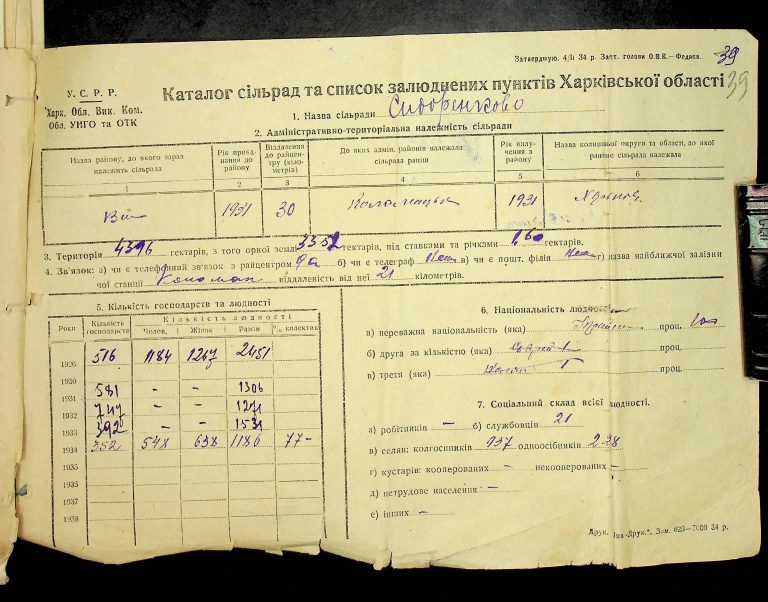 Затверджую. 4/II 34 р. Заст. голови О.В.К.—Федяєв.
39
У. С. Р. Р.
Харк. Обл. Вик. Ком.
Обл. УНГО та ОТК
Каталог сільрад та список залюднених пунктів Харківської області
39
1. Назва сільради Сидоренково
2. Адміністративно-територіальна належність сільради
Назва району, до якого зараз належить сільрада
Рік приєднання до району
Віддалення до райцентру (кілометрів)
До яких адмін. районів належала сільрада раніш
Рік вилучення з району
Назва колишньої округи та області, до якої раніше сільрада належала
1 2 3 4 5 6
1931 30 1931
3. Територія 4396 гектарів, з того орної землі 3352 гектарів, під ставками та річками гектарів.
4. Зв'язок: а) чи є телефонний зв'язок з райцентром да б) чи є телеграф в) чи є пошт. філія г) назва найближчої залізни
чої станції віддаленість від неї 21 кілометрів.
5. Кількість господарств та людности
Роки
Кількість господарств
Кількість людности
Чолов. Жінок Разом % колектив
1926 516 1184 1267 2451
1930
1931 581 – – 1306
1932 747 – – 1271
1933 392 – – 1531
1934 352 548 638 1186 77–
1935
1936
1937
1938
6. Національність людности
а) переважна національність (яка) проц.
б) друга за кількістю (яка) проц.
в) третя (яка) проц.
7. Соціальний склад всієї людності.
а) робітників – б) службовців 21
в) селян: колгоспників 937 одноосібників 238
г) кустарів: кооперованих – некооперованих –
д) нетрудове населення –
е) інших –
Зам. 623—7000 34 р.